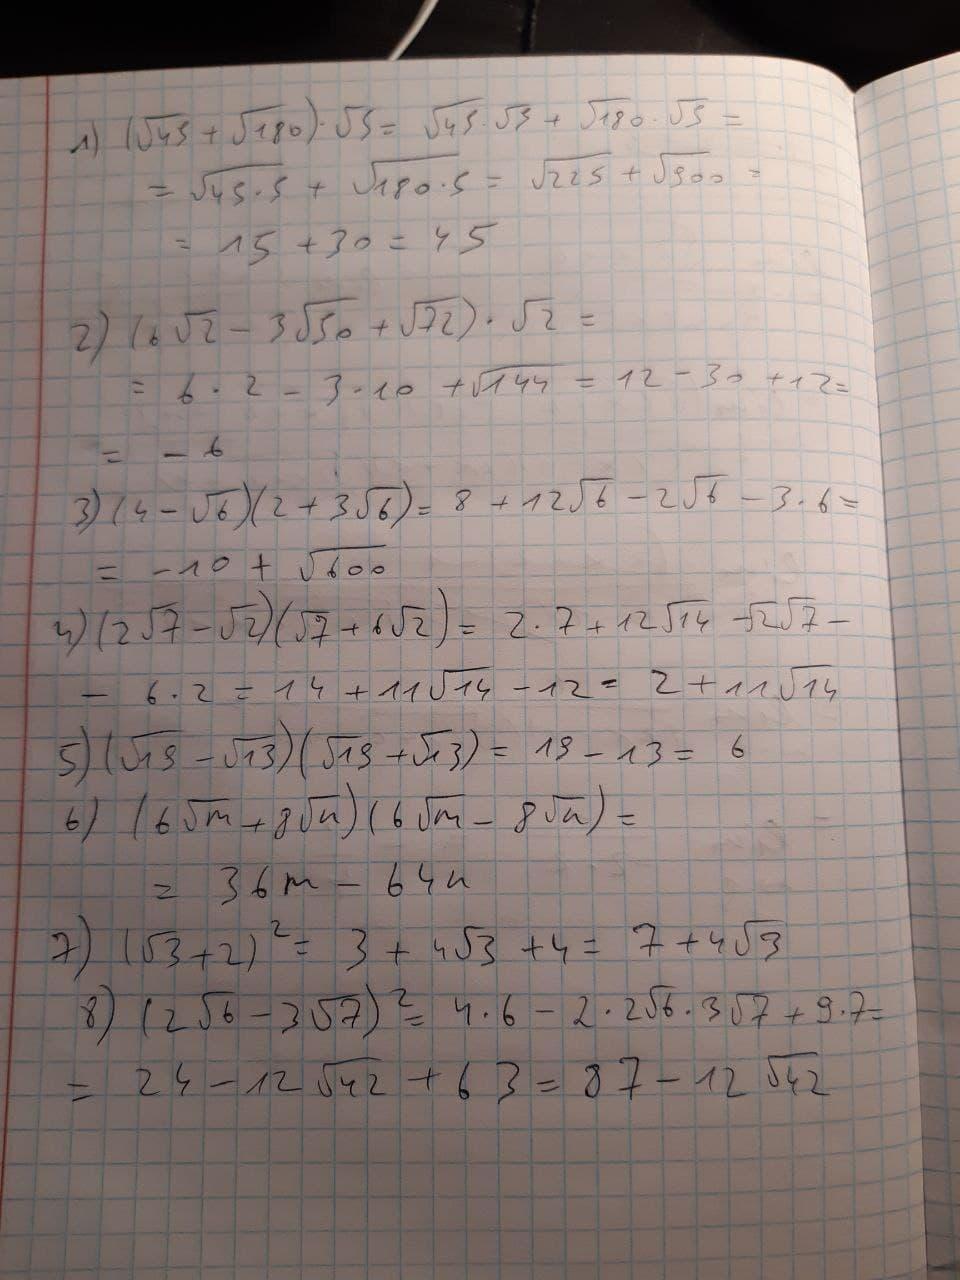 1) (√45 + √180)·√5 = √45·√5 + √180·√5 =
= √45·5 + √180·5 = √225 + √900 =
= 15 + 30 = 45
2) (6√2 − 3√50 + √72)·√2 =
= 6·2 − 3·10 + √144 = 12 − 30 + 12 =
= − 6
3) (4 − √6)(2 + 3√6) = 8 + 12√6 − 2√6 − 3·6 =
= −10 + √600
4) (2√7 − √2)(√7 + 6√2) = 2·7 + 12√14 − √2√7 −
− 6·2 = 14 + 11√14 − 12 = 2 + 11√14
5) (√19 − √13)(√19 + √13) = 19 − 13 = 6
6) (6√m + 8√n)(6√m − 8√n) =
= 36m − 64n
7) (√3 + 2)² = 3 + 4√3 + 4 = 7 + 4√3
8) (2√6 − 3√7)² = 4·6 − 2·2√6·3√7 + 9·7 =
= 24 − 12√42 + 63 = 87 − 12√42